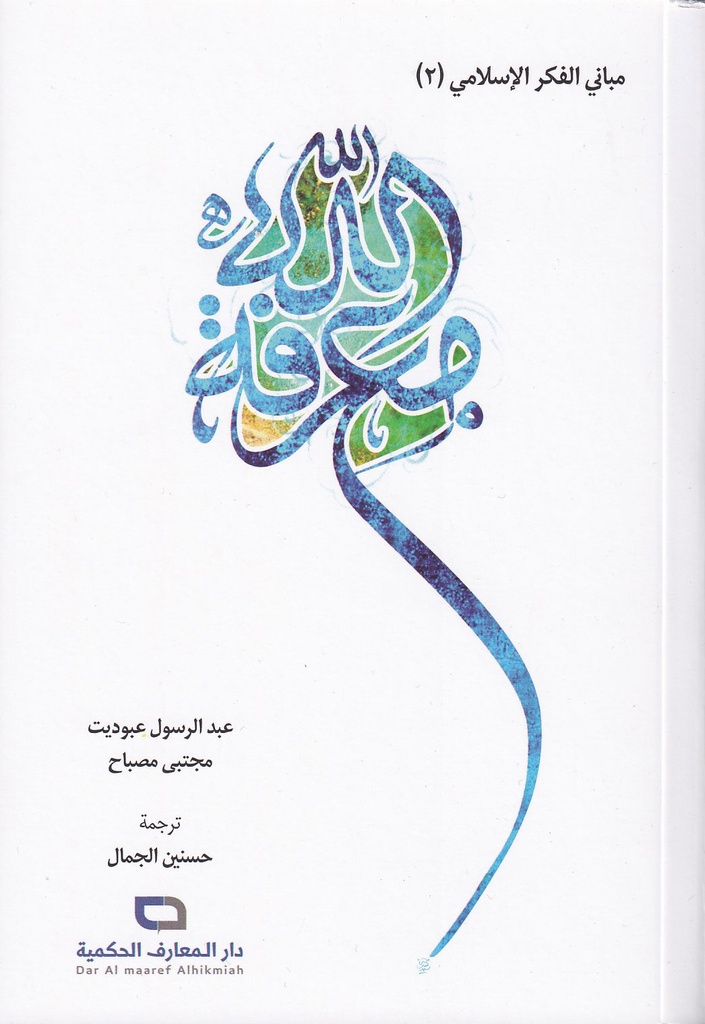 مباني الفكر الإسلامي (٢)
معرفة الله
عبد الرسول عبوديت
مجتبى مصباح
ترجمة
حسنين الجمال
دار المعارف الحكمية
Dar Al maaref Alhikmiah